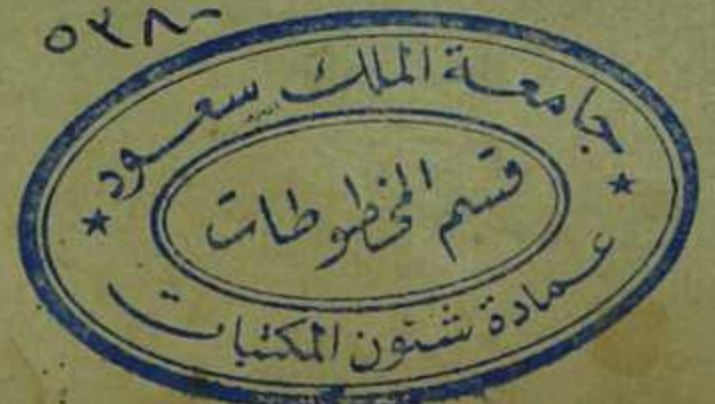 ٥٣٨٠
جامعة الملك سعود
قسم المخطوطات
عمادة شئون المكتبات